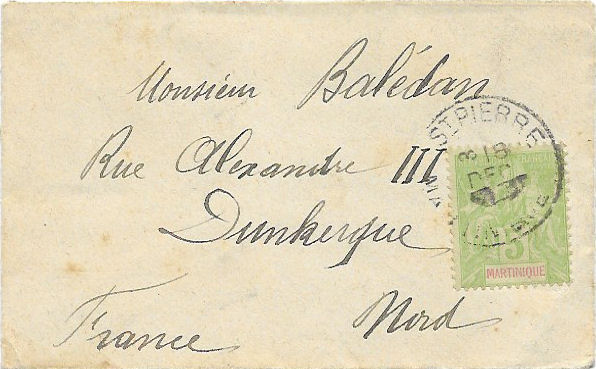 Monsieur Balédan
Rue Alexandre III
Dunkerque
Nord
France
ST PIERRE
3
18
DEC
MARTINIQUE
5